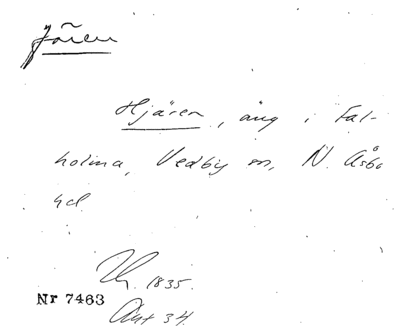 Jären
Hjären, äng i Fal-
holma, Vedby sn, N. Åsbo
hd
1835.
Nr 7463
Akt 34.